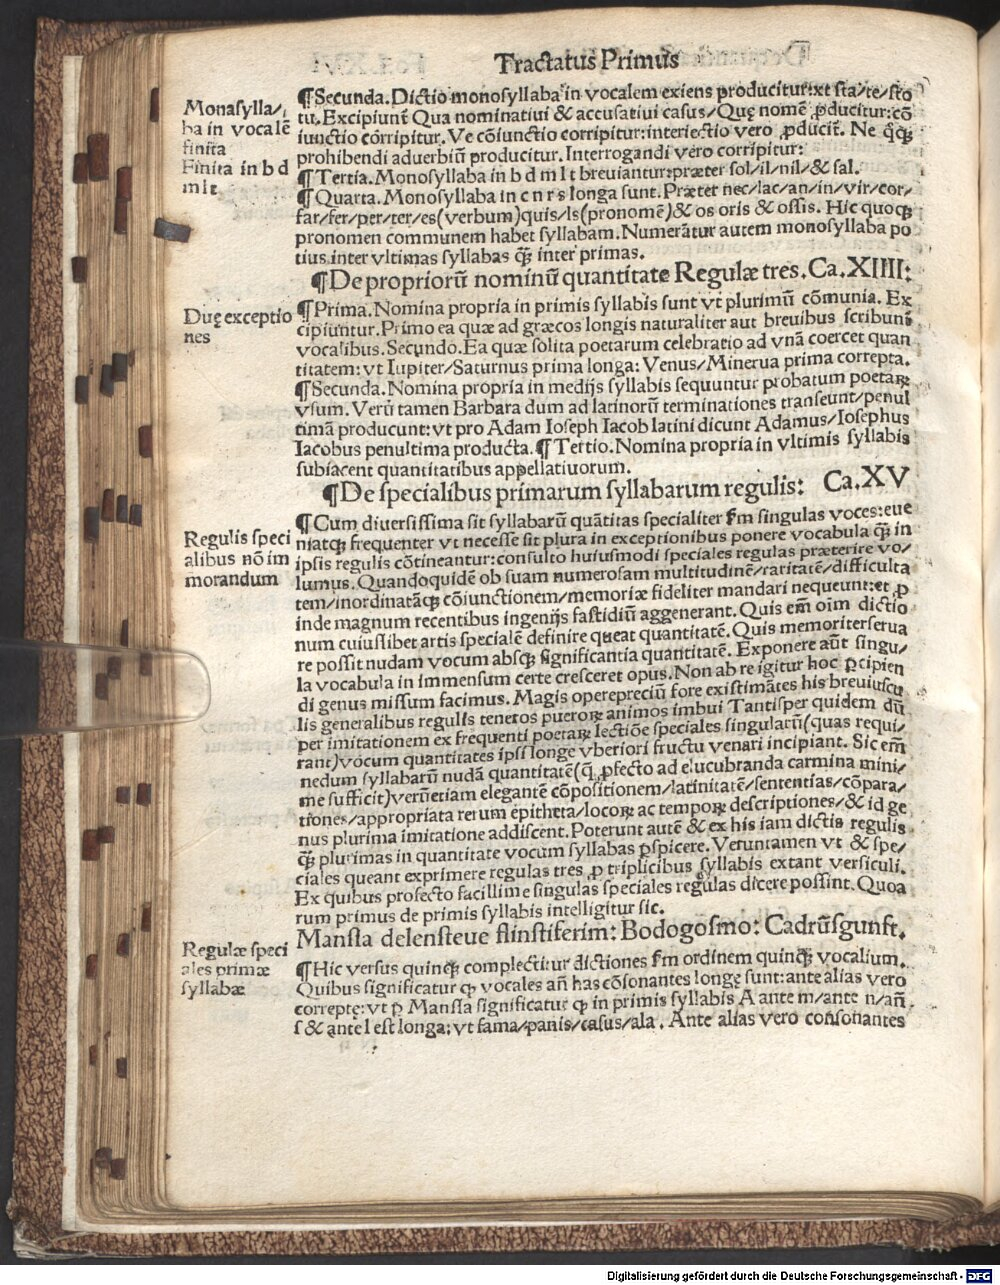 Tractatus Primus
Monasylla/
ba in vocalē
finita
Finita in b d
m l t
¶Secunda. Dictio monosyllaba in vocalem exiens producitur:vt sta/te/sto
tu. Excipiunt Qua nominatiui & accusatiui casus/Quę nomē ꝓducitur:cō
iunctio corripitur. Ve cōiunctio corripitur:interiectio vero ꝓducit. Ne q̄qꝫ
prohibendi aduerbiū producitur. Interrogandi vero corripitur:
¶Tertia. Monosyllaba in b d m l t breviantur:præter sol/il/nil/& sal.
¶Quarta. Monosyllaba in c n r s longa sunt. Præter nec/lac/an/in/vir/cor/
far/fer/per/ter/es(verbum)quis/Is(pronomē)& os oris & ossis. Hic quoqꝫ
pronomen communem habet syllabam. Numerātur autem monosyllaba po
tius inter vltimas syllabas qꝫ̄ inter primas.
¶De propriorū nominū quantitate Regulæ tres. Ca.XIIII:
Duę exceptio
nes
¶Prima. Nomina propria in primis syllabis sunt vt plurimū cōmunia. Ex
cipiuntur. Primo ea quæ ad græcos longis naturaliter aut breuibus scribunt̄
vocalibus. Secundo. Ea quæ solita poetarum celebratio ad vnā coercet quan
titatem:vt Iupiter/Saturnus prima longa:Venus/Minerua prima correpta.
¶Secunda. Nomina propria in medijs syllabis sequuntur probatum poetaꝝ
vsum. Verū tamen Barbara dum ad latinorū terminationes transeunt/penul
timā producunt:vt pro Adam Ioseph Iacob latini dicunt Adamus/Iosephus
Iacobus penultima producta.¶Tertio. Nomina propria in vltimis syllabis
subiacent quantitatibus appellatiuorum.
¶De specialibus primarum syllabarum regulis: Ca.XV
Regulis speci
alibus nō im
morandum
¶Cum diuersissima sit syllabarū quātitas specialiter ẜm singulas voces:eue
niatqꝫ frequenter vt necesse sit plura in exceptionibus ponere vocabula qꝫ̄ in
ipsis regulis cōtineantur:consulto huiusmodi speciales regulas præterire vo/
lumus. Quandoquidē ob suam numerosam multitudinē/raritatē/difficulta
tem/inordinatāqꝫ cōiunctionem/memoriæ fideliter mandari nequeunt:et ꝓ
inde magnum recentibus ingenijs fastidiū aggenerant. Quis em̄ oīm dictio
num cuiuslibet artis specialē definire queat quantitatē. Quis memoriter serua
re possit nudam vocum absqꝫ significantia quantitatē. Exponere aūt singu/
la vocabula in immensum certe cresceret opus. Non ab re igitur hoc ꝑcipien
di genus missum facimus. Magis operepreciū fore existimātes his breuiuscu
lis generalibus regulis teneros pueroꝝ animos imbui Tantisper quidem dū
per imitationem ex frequenti poetaꝝ lectiōe speciales singularū(quas requi/
rant)vocum quantitates ipsi longe vberiori fructu venari incipiant. Sic em̄
nedum syllabarū nudā quantitatē(q̄ ꝓfecto ad elucubranda carmina mini/
me sufficit)verūetiam elegantē cōpositionem/latinitatē/sententias/cōpara/
tiones/appropriata rerum epitheta/locoꝝ ac tempoꝝ descriptiones/& id ge
nus plurima imitatione addiscent. Poterunt autē & ex his iam dictis regulis
qꝫ̄ plurimas in quantitate vocum syllabas ꝑspicere. Veruntamen vt & spe/
ciales queant exprimere regulas tres ꝓ triplicibus syllabis extant versiculi.
Ex quibus profecto facillime singulas speciales regulas dicere possint. Quoa
rum primus de primis syllabis intelligitur sic.
Mansla delensteue flinstiferim: Bodogosmo: Cadrūsgunft.
Regulæ speci
ales primæ
syllabæ
¶Hic versus quinqꝫ complectitur dictiones ẜm ordinem quinqꝫ vocalium.
Quibus significatur ꝙ vocales an̄ has cōsonantes longę sunt:ante alias vero
correptę:vt ꝑ Mansla significatur ꝙ in primis syllabis A ante m/ante n/an̄
s & ante l est longa:vt fama/panis/casus/ala. Ante alias vero consonantes
Digitalisierung gefördert durch die Deutsche Forschungsgemeinschaft - DFG